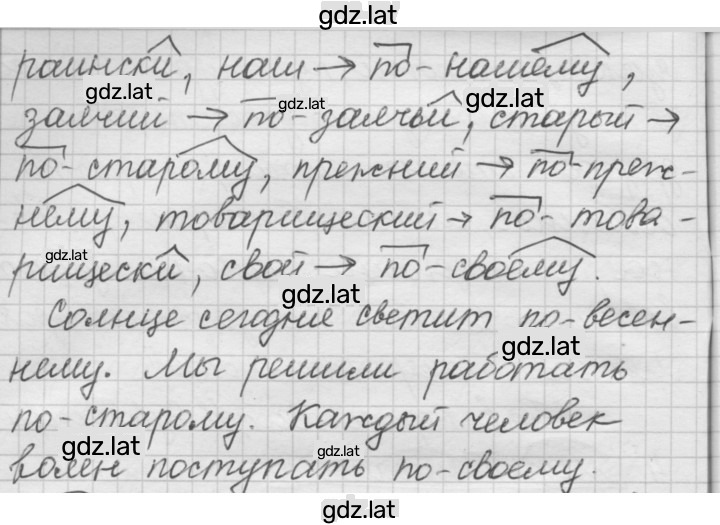 gdz.lat
раински, наш → по-нашему,
gdz.lat gdz.lat gdz.lat
заячий → по-заячьи, старый →
по-старому, прежний → по-преж-
нему, товарищеский → по-това-
gdz.lat
рищески, свой → по-своему.
gdz.lat
Солнце сегодня светит по-весен-
gdz.lat
нему. Мы решили работать
по-старому. Каждый человек
gdz.lat gdz.lat
волен поступать по-своему.
gdz.lat